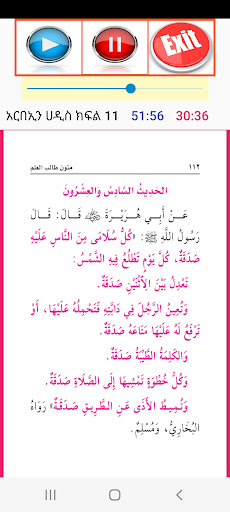 Exit
አርባኢን ሀዲስ ክፍል 11 51:56 30:36
١١٢ متون طالب العلم
الحَدِيثُ السَّادِسُ وَالعِشْرُونَ
عَنْ أَبِي هُرَيْرَةَ ﵁ قَالَ: قَالَ
رَسُولُ اللَّهِ ﷺ: «كُلُّ سُلَامَى مِنَ النَّاسِ عَلَيْهِ
صَدَقَةٌ، كُلَّ يَوْمٍ تَطْلُعُ فِيهِ الشَّمْسُ:
تَعْدِلُ بَيْنَ الِاثْنَيْنِ صَدَقَةٌ.
وَتُعِينُ الرَّجُلَ فِي دَابَّتِهِ فَتَحْمِلُهُ عَلَيْهَا، أَوْ
تَرْفَعُ لَهُ عَلَيْهَا مَتَاعَهُ صَدَقَةٌ.
وَالكَلِمَةُ الطَّيِّبَةُ صَدَقَةٌ.
وَكُلُّ خُطْوَةٍ تَمْشِيهَا إِلَى الصَّلَاةِ صَدَقَةٌ.
وَتُمِيطُ الأَذَى عَنِ الطَّرِيقِ صَدَقَةٌ» رَوَاهُ
البُخَارِيُّ، وَمُسْلِمٌ.